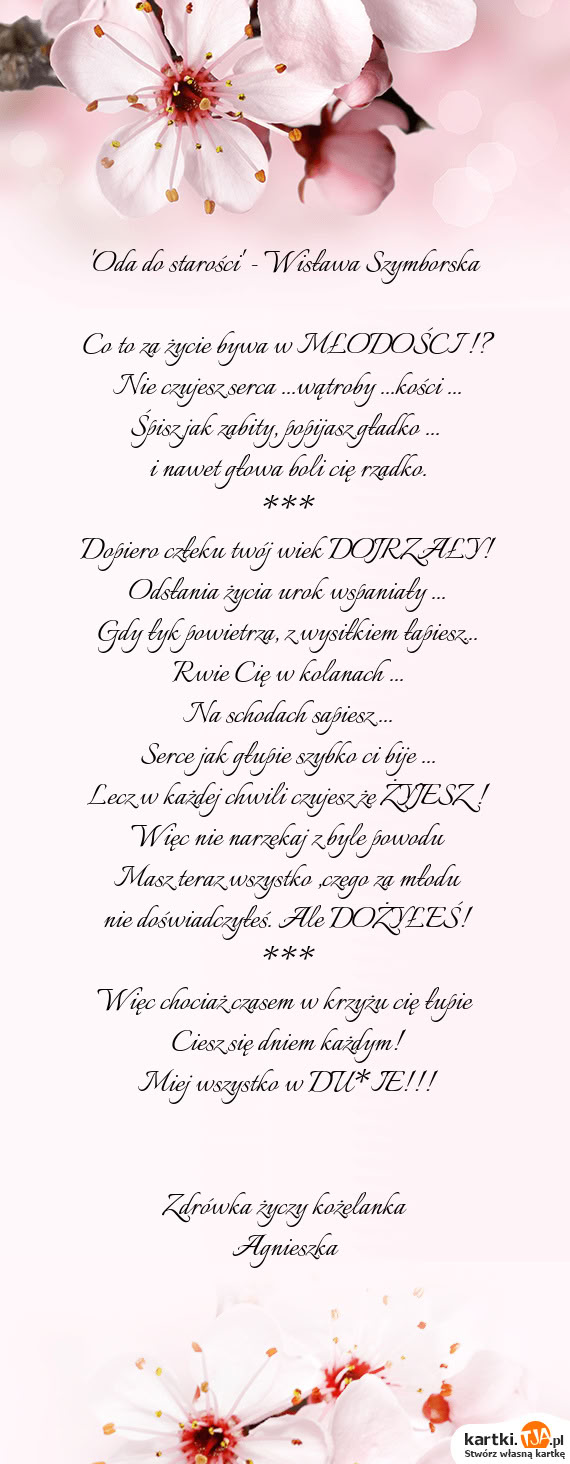 'Oda do starości' - Wisława Szymborska
Co to za życie bywa w MŁODOŚCI !?
Nie czujesz serca ...wątroby ...kości ...
Śpisz jak zabity, popijasz gładko ...
i nawet głowa boli cię rzadko.
***
Dopiero człeku twój wiek DOJRZAŁY!
Odsłania życia urok wspaniały ...
Gdy łyk powietrza, z wysiłkiem łapiesz...
Rwie Cię w kolanach ...
Na schodach sapiesz ...
Serce jak głupie szybko ci bije ...
Lecz w każdej chwili czujesz że ŻYJESZ !
Więc nie narzekaj z byle powodu
Masz teraz wszystko ,czego za młodu
nie doświadczyłeś. Ale DOŻYŁEŚ!
***
Więc chociaż czasem w krzyżu cię łupie
Ciesz się dniem każdym!
Miej wszystko w DU*IE!!!
Zdrówka życzy kożelanka
Agnieszka
kartki.TJA.pl
Stwórz własną kartkę